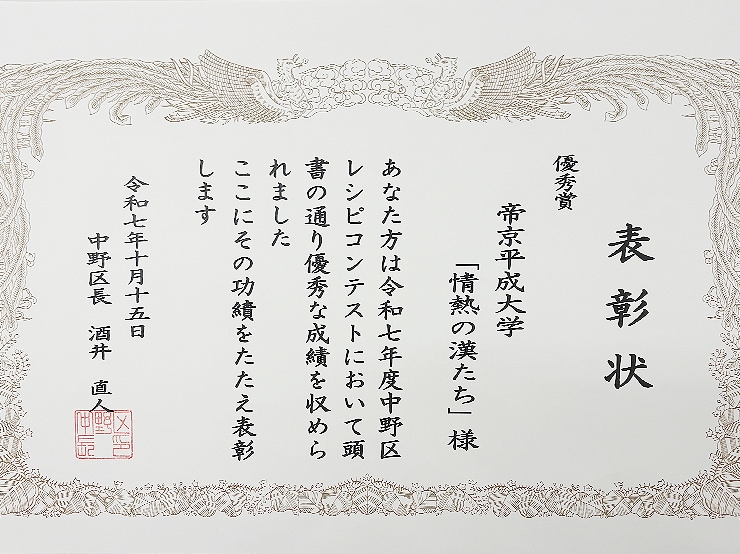 表彰状
優秀賞
帝京平成大学
「情熱の漢たち」様
あなた方は令和七年度中野区
レシピコンテストにおいて頭
書の通り優秀な成績を収めら
れました
ここにその功績をたたえ表彰
します
令和七年十月十五日
中野区長 酒井 直人